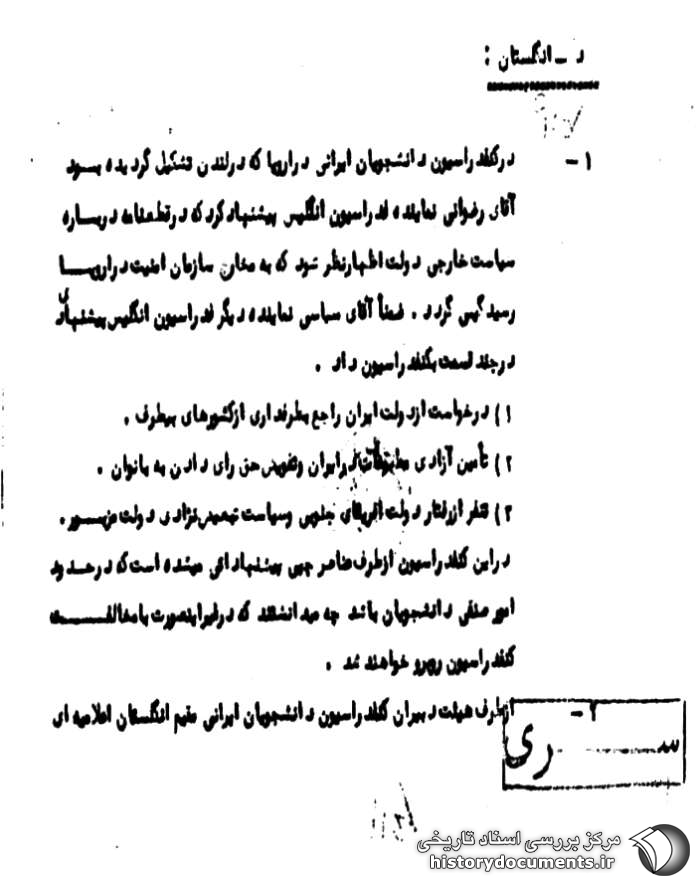 د ــ انگلستان :
۱ -
درکنفدراسیون دانشجویان ایرانی دراروپا که درلندن تشکیل گردیده بــود
آقای رضوانی نماینده فدراسیون انگلیس پیشنهاد کرد که درقطعنامه دربــاره
سیاست خارجی دولت اظهارنظر شود که به مخارج سازمان امنیت دراروپــا
رسیدگی گردد . ضمناً آقای سیاسی نماینده دیگر فدراسیون انگلیس پیشنهادی
درچند قسمت بکنفدراسیون داد .
۱ ) درخواست ازدولت ایران راجع بطرفداری ازکشورهای بیطرف .
۲ ) تأمین آزادی مطبوعات درایران وتفویض حق رای دادن به بانوان .
۳ ) تنفر ازرفتار دولت افریقای جنوبی وسیاست تبعیض نژادی دولت مزبــور .
دراین کنفدراسیون ازطرف عناصر چپی پیشنهاداتی میشده است که درحــدود
امور صنفی دانشجویان باشد چه میدانستند که درغیراینصورت بامخالفــــت
کنفدراسیون روبرو خواهند شد .
۲ -
ازطرف هیئت دبیران کنفدراسیون دانشجویان ایرانی مقیم انگلستان اعلامیه ای
ســـری
مرکز بررسی اسناد تاریخی
historydocuments.ir